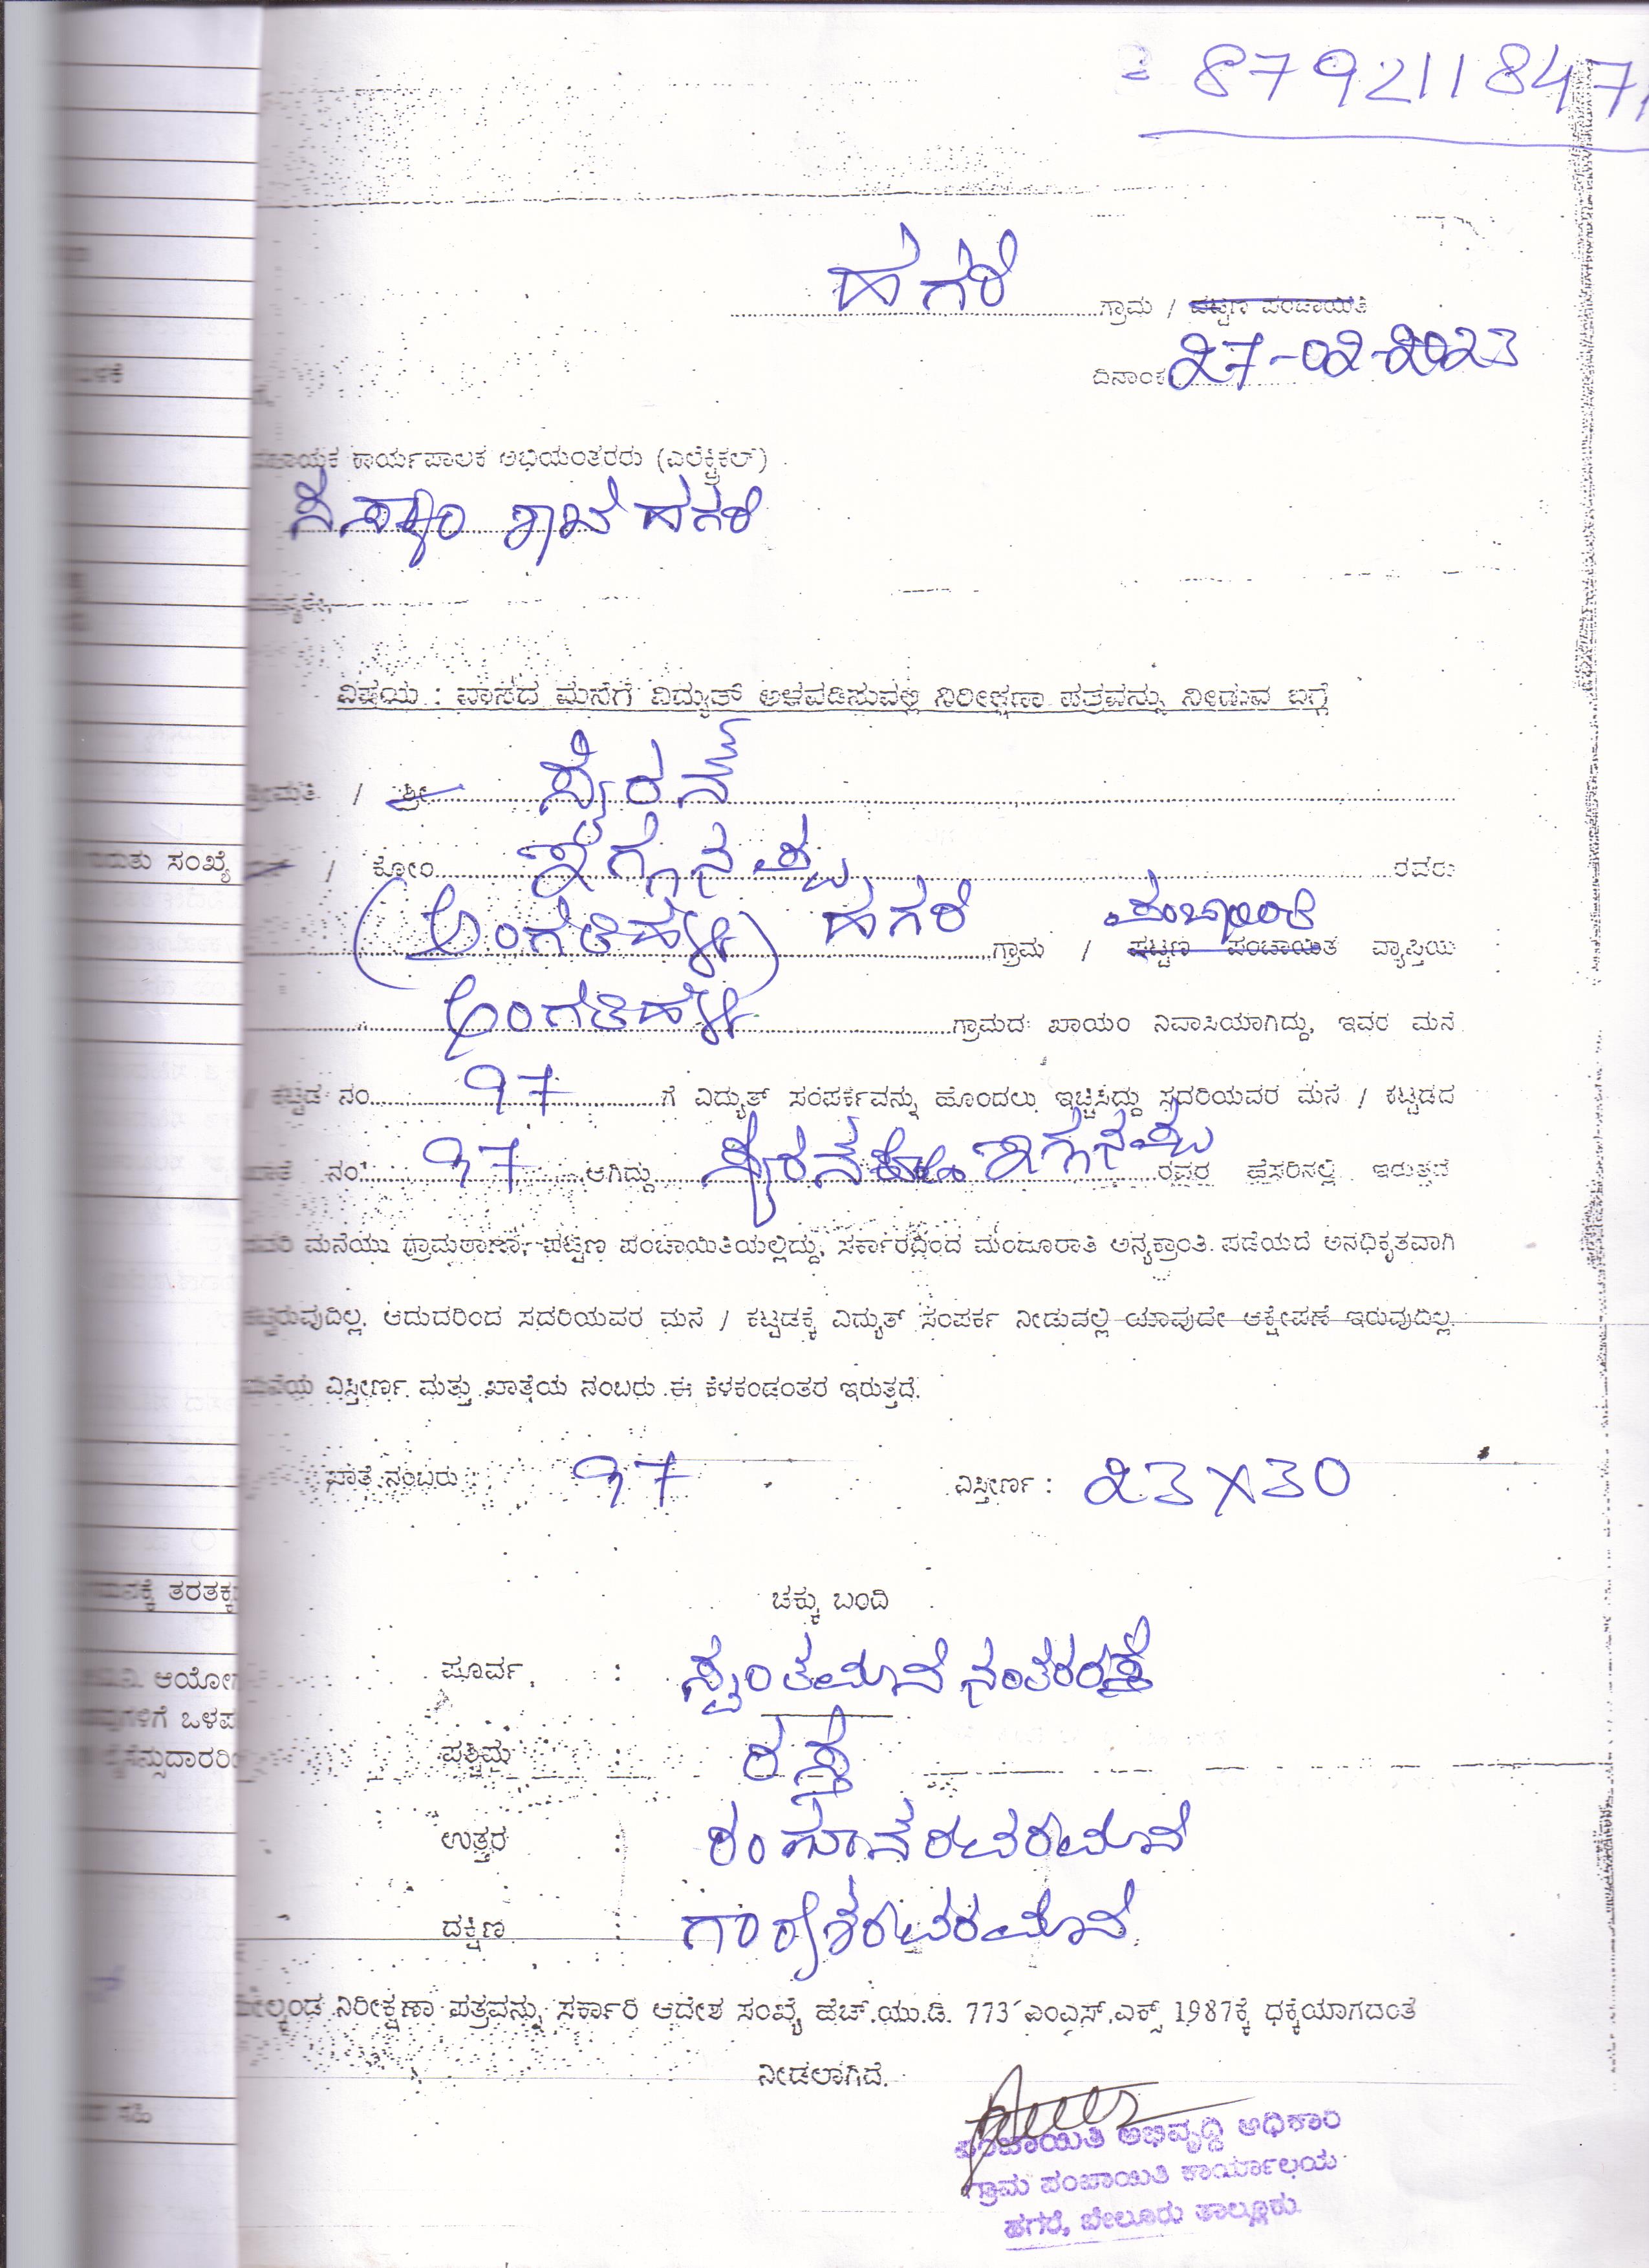 8792118471
ಹಗರೆ ಗ್ರಾಮ / ಪಟ್ಟಣ ಪಂಚಾಯಿತಿ
ದಿನಾಂಕ 27-02-2023
ಸಹಾಯಕ ಕಾರ್ಯಪಾಲಕ ಅಭಿಯಂತರರು (ಎಲೆಕ್ಟ್ರಿಕಲ್)
ಶಾಖೆ ಹಗರೆ
ವಿಷಯ : ವಾಸದ ಮನೆಗೆ ವಿದ್ಯುತ್ ಅಳವಡಿಸುವಲ್ಲಿ ನಿರೀಕ್ಷಣಾ ಪತ್ರವನ್ನು ನೀಡುವ ಬಗ್ಗೆ
ಶ್ರೀಮತಿ / ಶ್ರೀ
ಬಿನ್ / ಕೋಂ ರವರು
ರುತು ಸಂಖ್ಯೆ
(ಅಂಗಡಿಹಳ್ಳಿ) ಹಗರೆ ಗ್ರಾಮ / ಪಟ್ಟಣ ಪಂಚಾಯಿತ ವ್ಯಾಪ್ತಿಯ
ಪಂಚಾಯಿತಿ
ಅಂಗಡಿಹಳ್ಳಿ ಗ್ರಾಮದ ಖಾಯಂ ನಿವಾಸಿಯಾಗಿದ್ದು, ಇವರ ಮನೆ
/ ಕಟ್ಟಡ ನಂ 97 ಗೆ ವಿದ್ಯುತ್ ಸಂಪರ್ಕವನ್ನು ಹೊಂದಲು ಇಚ್ಚಿಸಿದ್ದು ಸದರಿಯವರ ಮನೆ / ಕಟ್ಟಡದ
ಖಾತೆ ನಂ 97 ಆಗಿದ್ದು ಕೋಂ ರವರ ಹೆಸರಿನಲ್ಲಿ ಇರುತ್ತದೆ
ಸದರಿ ಮನೆಯು ಗ್ರಾಮಠಾಣಾ, ಪಟ್ಟಣ ಪಂಚಾಯಿತಿಯಲ್ಲಿದ್ದು, ಸರ್ಕಾರದಿಂದ ಮಂಜೂರಾತಿ ಅನ್ಯಕ್ರಾಂತಿ ಪಡೆಯದೆ ಅನಧಿಕೃತವಾಗಿ
ಕಟ್ಟಿರುವುದಿಲ್ಲ. ಆದುದರಿಂದ ಸದರಿಯವರ ಮನೆ / ಕಟ್ಟಡಕ್ಕೆ ವಿದ್ಯುತ್ ಸಂಪರ್ಕ ನೀಡುವಲ್ಲಿ ಯಾವುದೇ ಆಕ್ಷೇಪಣೆ ಇರುವುದಿಲ್ಲ.
ಮನೆಯ ವಿಸ್ತೀರ್ಣ ಮತ್ತು ಖಾತೆಯ ನಂಬರು ಈ ಕೆಳಕಂಡಂತರ ಇರುತ್ತದೆ.
ಖಾತೆ ನಂಬರು : 97 ವಿಸ್ತೀರ್ಣ : 23X30
ಚಕ್ಕು ಬಂದಿ
ಪೂರ್ವ : ಸ್ವಂತ ಮನೆ ನಂತರ ರಸ್ತೆ
ಪಶ್ಚಿಮ : ರಸ್ತೆ
ಉತ್ತರ : ರವರ ಮನೆ
ದಕ್ಷಿಣ : ರವರ ಮನೆ
ಮೇಲ್ಕಂಡ ನಿರೀಕ್ಷಣಾ ಪತ್ರವನ್ನು ಸರ್ಕಾರಿ ಆದೇಶ ಸಂಖ್ಯೆ ಹೆಚ್.ಯು.ಡಿ. 773 ಎಂಎಸ್.ಎಕ್ಸ್ 1987ಕ್ಕೆ ಧಕ್ಕೆಯಾಗದಂತೆ
ನೀಡಲಾಗಿದೆ.
ಪಂಚಾಯಿತಿ ಅಭಿವೃದ್ಧಿ ಅಧಿಕಾರಿ
ಗ್ರಾಮ ಪಂಚಾಯಿತಿ ಕಾರ್ಯಾಲಯ
ಹಗರೆ, ಬೇಲೂರು ತಾಲ್ಲೂಕು.